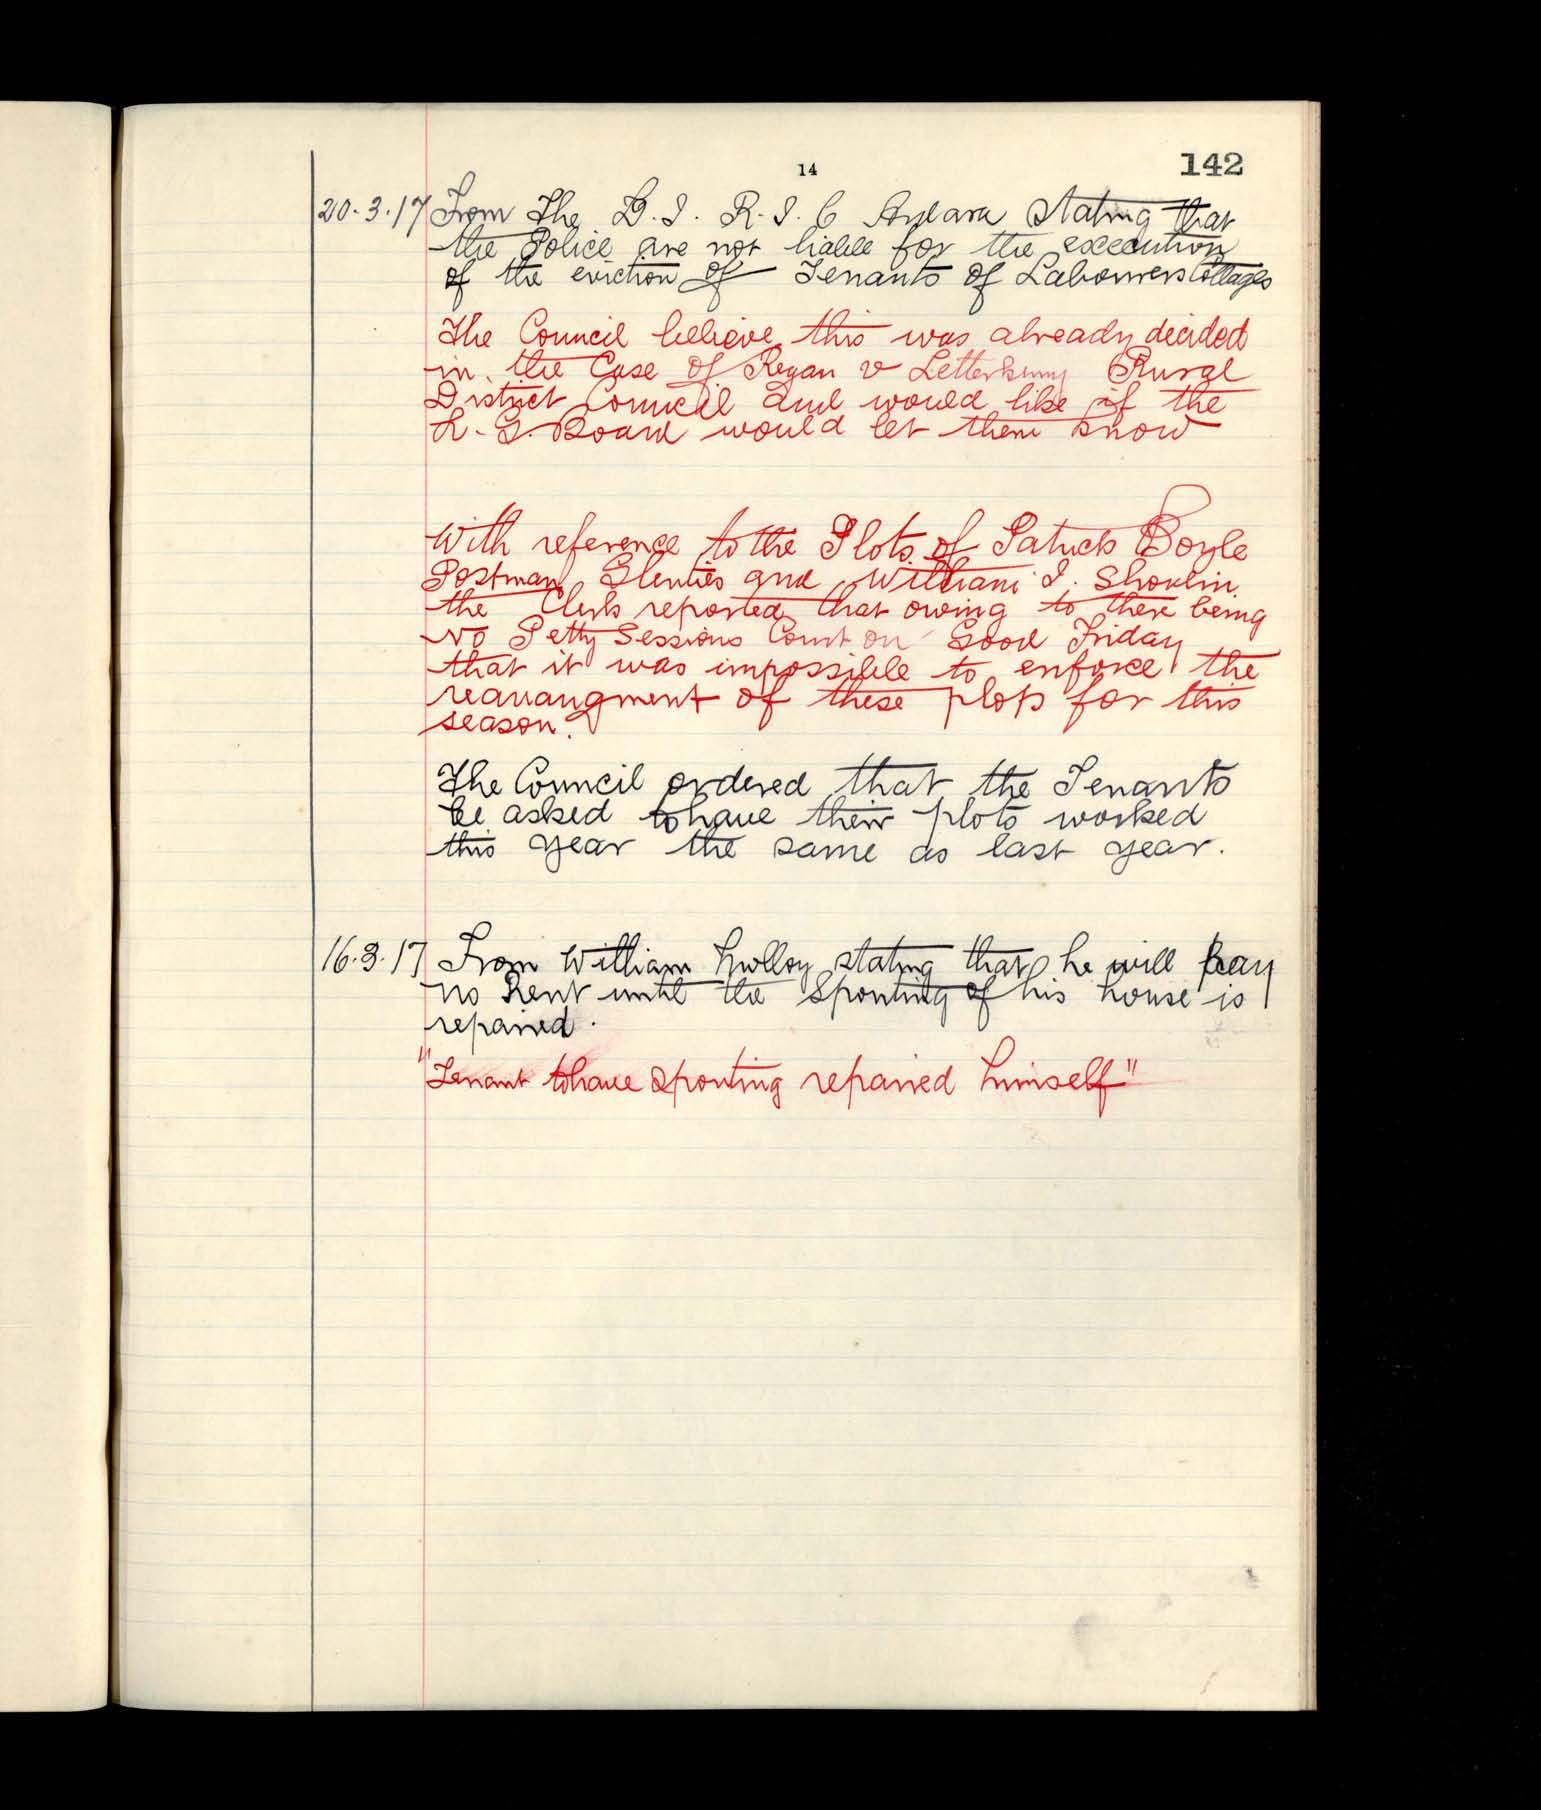 14
142
20.3.17 From The D.I. R.I.C Ardara stating that
the Police are not liable for the execution
of the eviction of Tenants of Labourers Cottages
The Council believe this was already decided
in the Case of Regan v Letterkenny Rural
District Council and would like if the
L.G. Board would let them know
With reference to the Plots of Patrick Boyle
Postman Glenties and William J. Shovlin
the Clerk reported that owing to there being
no Petty Sessions Court on Good Friday
that it was impossible to enforce the
rearrangment of these plots for this
season.
The Council ordered that the Tenants
be asked to have their plots worked
this year the same as last year.
16.3.17 From William stating that he will pay
no Rent until the Spouting of his house is
repaired.
"Tenant to have Spouting repaired himself"